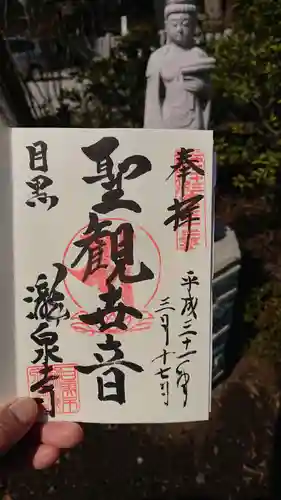 奉拝
平成三十一年
三月十七日
聖観世音
目黒
瀧泉寺